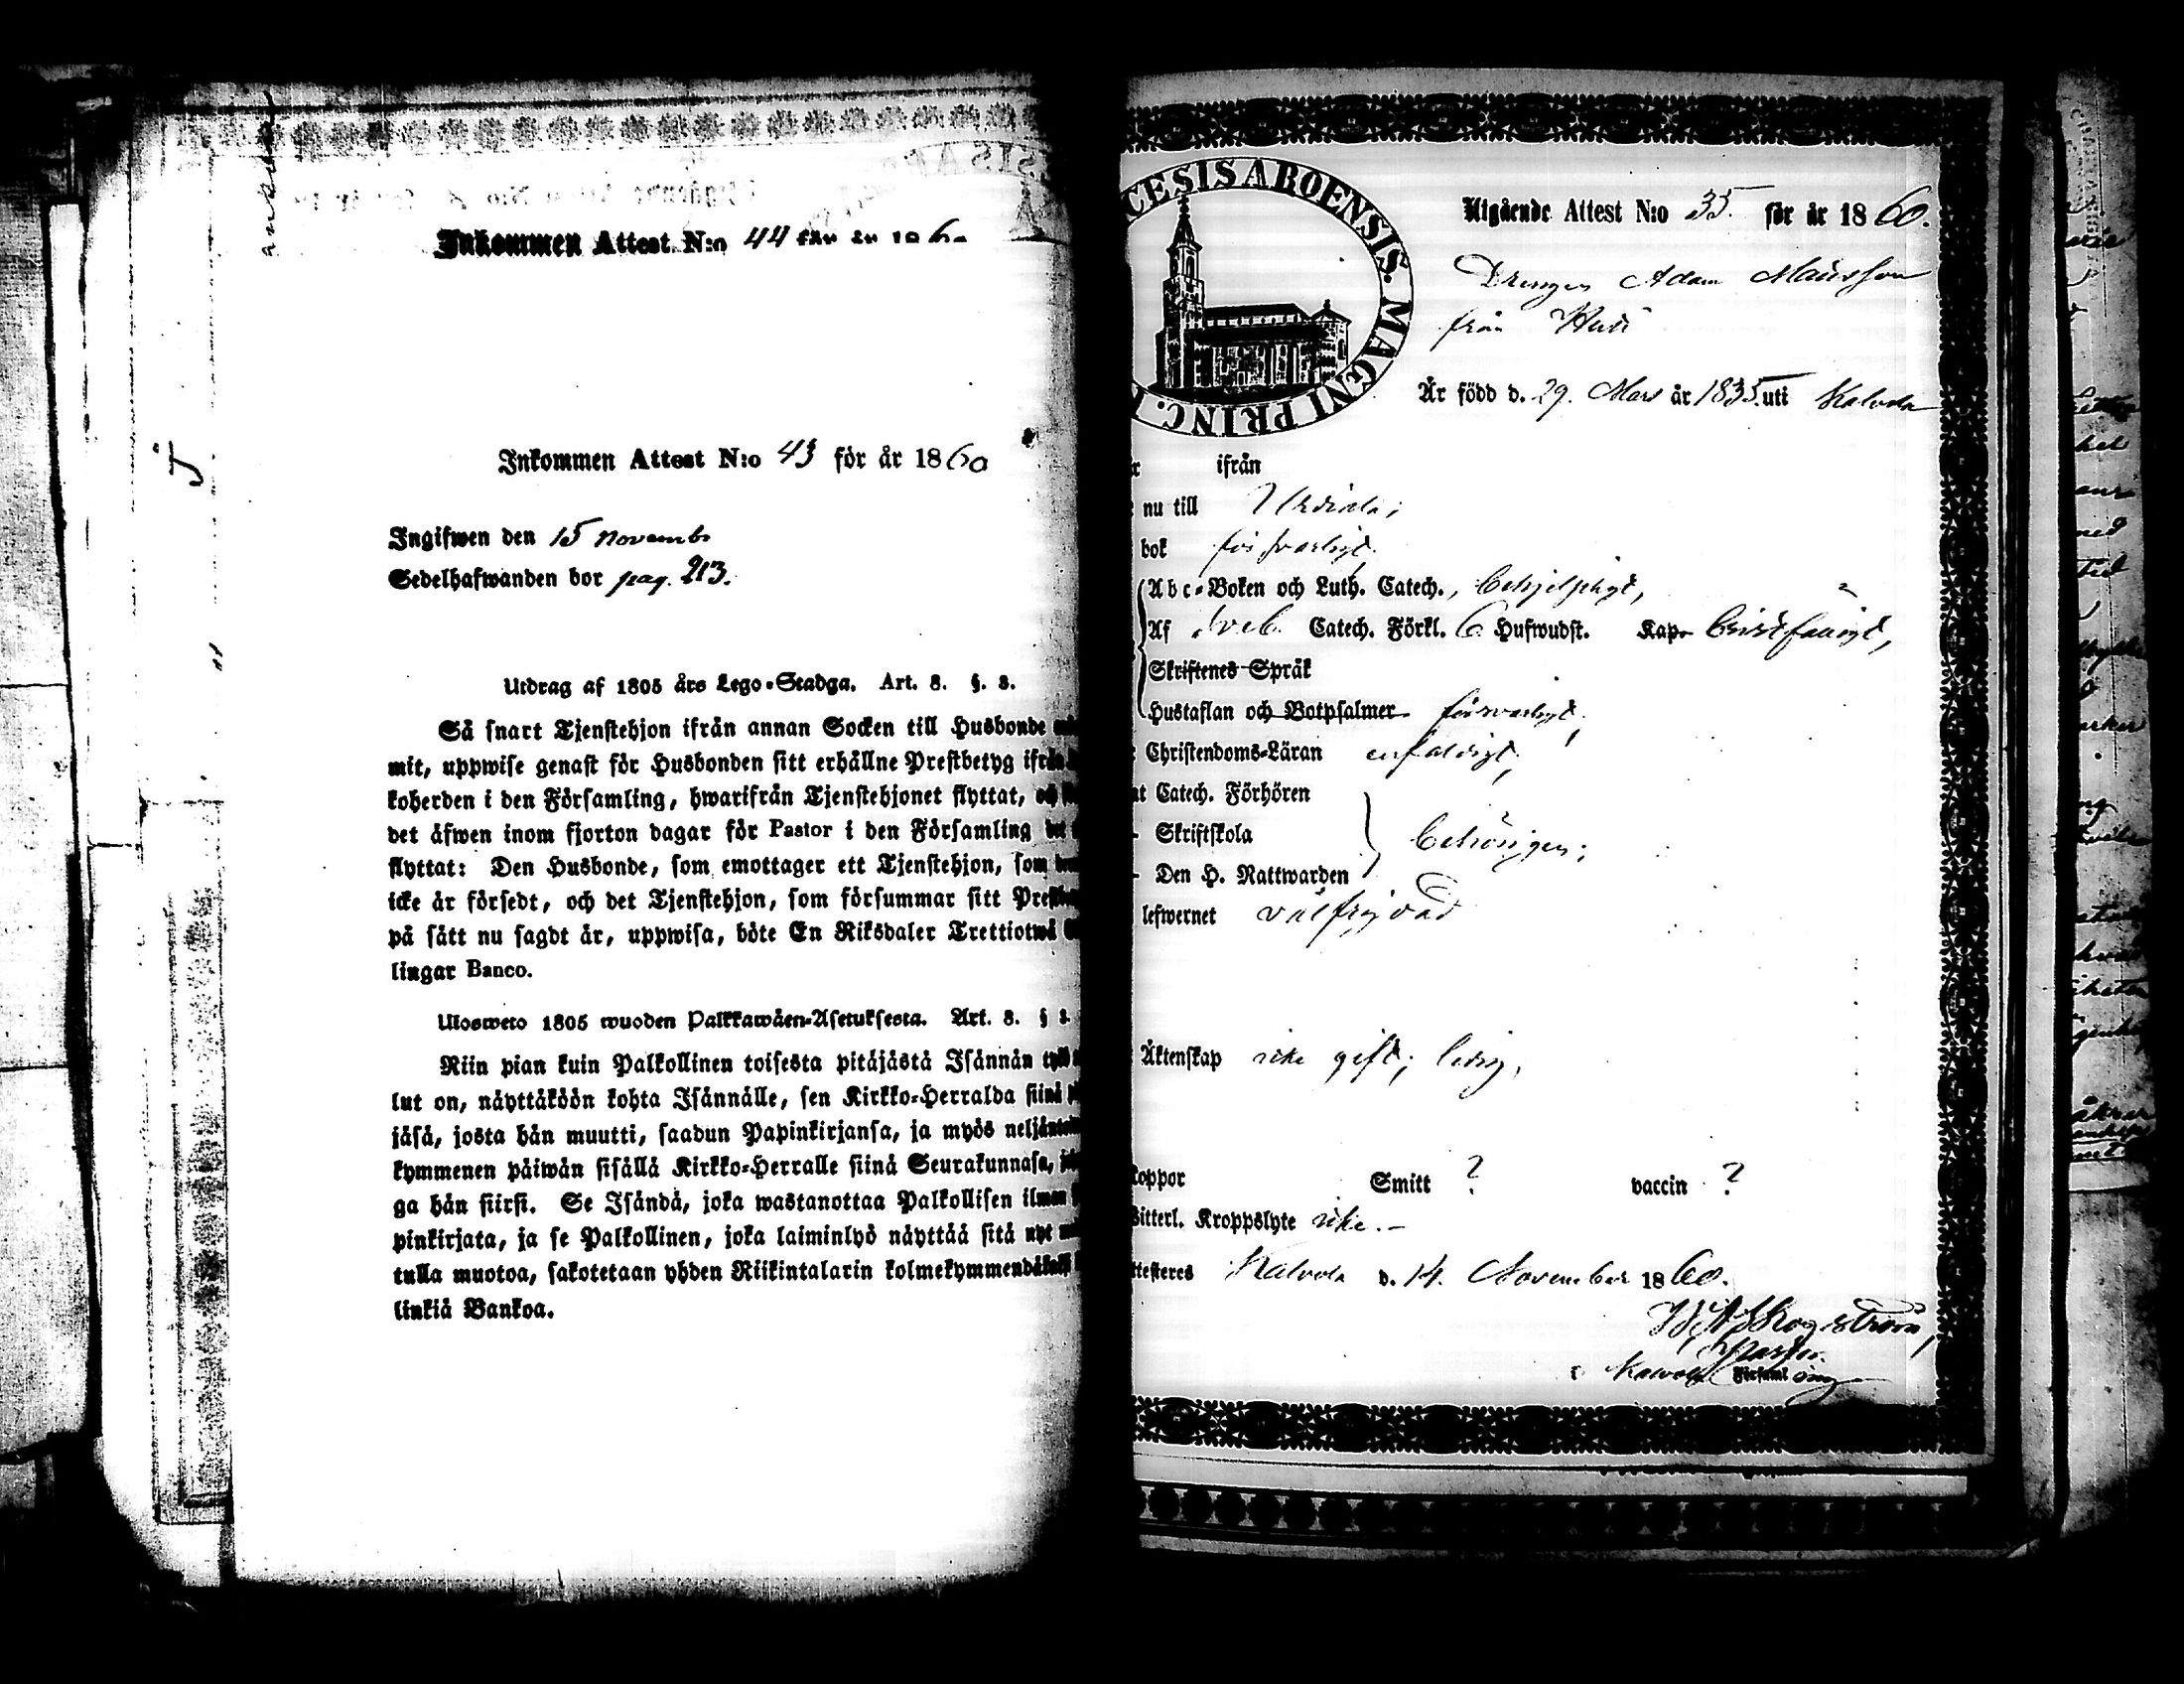 Inkommen Attest N:o 44 för år 1860
Inkommen Attest N:o 43 för år 1860
Ingifwen den 15 novembr
Sedelhafwanden bor pag. 213.
Utdrag af 1805 års Lego-Stadga. Art. 8. §. 3.
Så snart Tjenstehjon ifrån annan Socken till Husbonde
mit, uppwise genast för Husbonden sitt erhållne Prestbetyg ifrån
koherden i den Församling, hwarifrån Tjenstehjonet flyttat, och
det äfwen inom fjorton dagar för Pastor i den Församling det
flyttat: Den Husbonde, som emottager ett Tjenstehjon, som
icke är försedt, och det Tjenstehjon, som försummar sitt
på sätt nu sagdt är, uppwisa, böte En Riksdaler Trettiotwå
lingar Banco.
Ulosweto 1805 wuoden Palkkawäen-Asetuksesta. Art. 8. § 3
Niin pian kuin Palkollinen toisesta pitäjästä Isännän
lut on, näyttäköön kohta Isännälle, sen Kirkko-Herralda siinä
jäsä, josta hän muutti, saadun Papinkirjansa, ja myös
kymmenen päiwän sisällä Kirkko-Herralle siinä Seurakunnasa,
ga hän siirsi. Se Isändä, joka wastanottaa Palkollisen ilman
pinkirjata, ja se Palkollinen, joka laiminlyö näyttää sitä nyt
tulla muotoa, sakotetaan yhden Riikintalarin
linkiä Bankoa.
CESIS ABOENSIS. MAGNI PRINC.
Utgående Attest N:o 35. för år 1860.
Drengen Adam
från
Är född d. 29. Mars år 1835. uti Kalvola
ifrån
nu till Urdiala;
bok försvarligt.
Abc-Boken och Luth. Catech., behjelpligt,
Af Sveb. Catech. Förkl. 6 Hufwudst. Kap. bristfälligt,
Skriftenes Språk
Hustaflan och Botpsalmer försvarligt,
Christendoms-Läran enfaldigt,
Catech. Förhören
Skriftskola behörigen;
Den H. Nattwarden
lefwernet välfrejdad
Äktenskap icke gift; ledig,
koppor Smitt ? vaccin ?
Bitterl. Kroppslyte icke.—
Kalvola d. 14. November 1860.
Skogström,
Pastor
Kalvola Församling